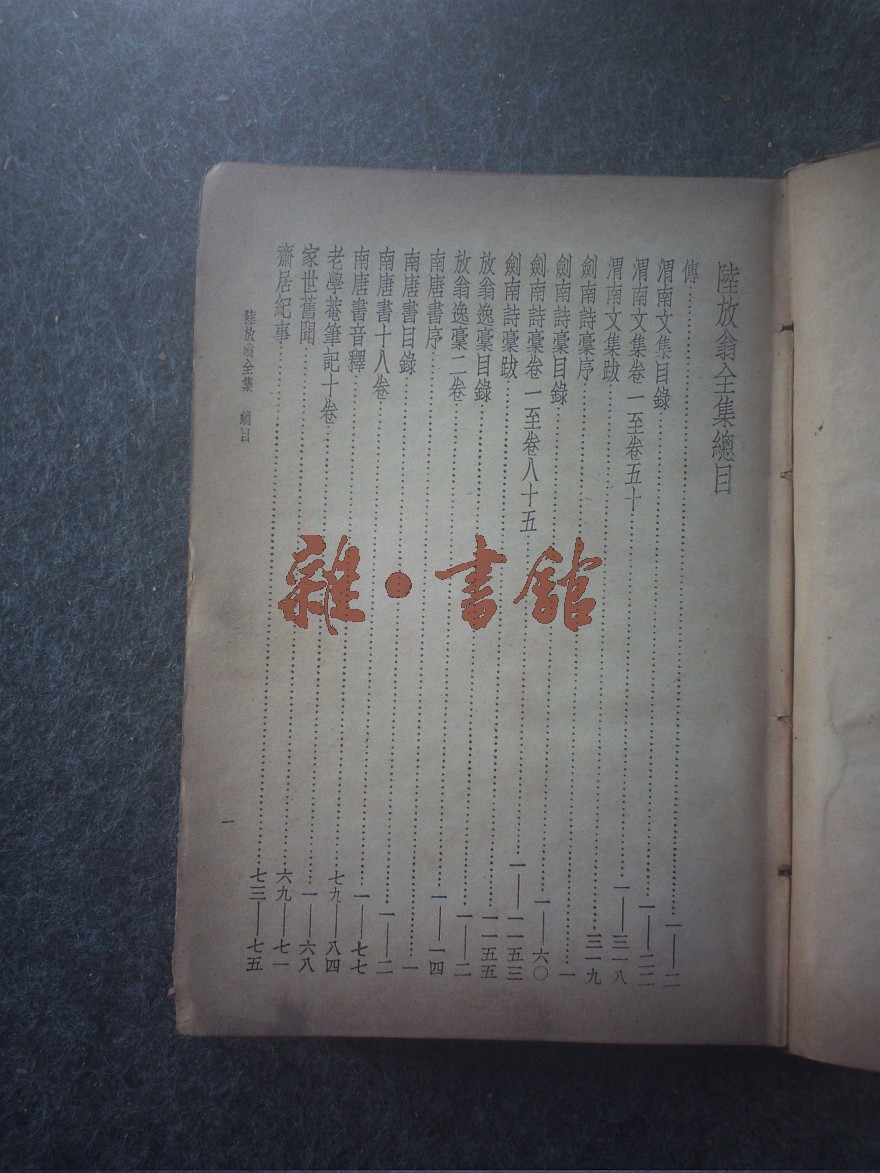 陸放翁全集總目
傳……一——二
渭南文集目錄……一——二二
渭南文集卷一至卷五十……一——三一八
渭南文集跋……三一九
劍南詩稾序……一
劍南詩稾目錄……一——六〇
劍南詩稾卷一至卷八十五……一——一一五三
劍南詩稾跋……一一五五
放翁逸稾目錄……一——二
放翁逸稾二卷……一——一四
南唐書序……一
南唐書目錄……一——二
南唐書十八卷……一——七七
南唐書音釋……七九——八四
老學菴筆記十卷……一——六八
家世舊聞……六九——七一
齋居紀事……七三——七五
陸放翁全集 總目
一
雜·書館